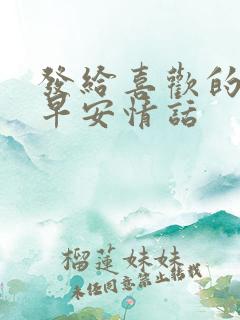 發給喜歡的
早安情話
榴蓮妹妹
未任同意禁止转载